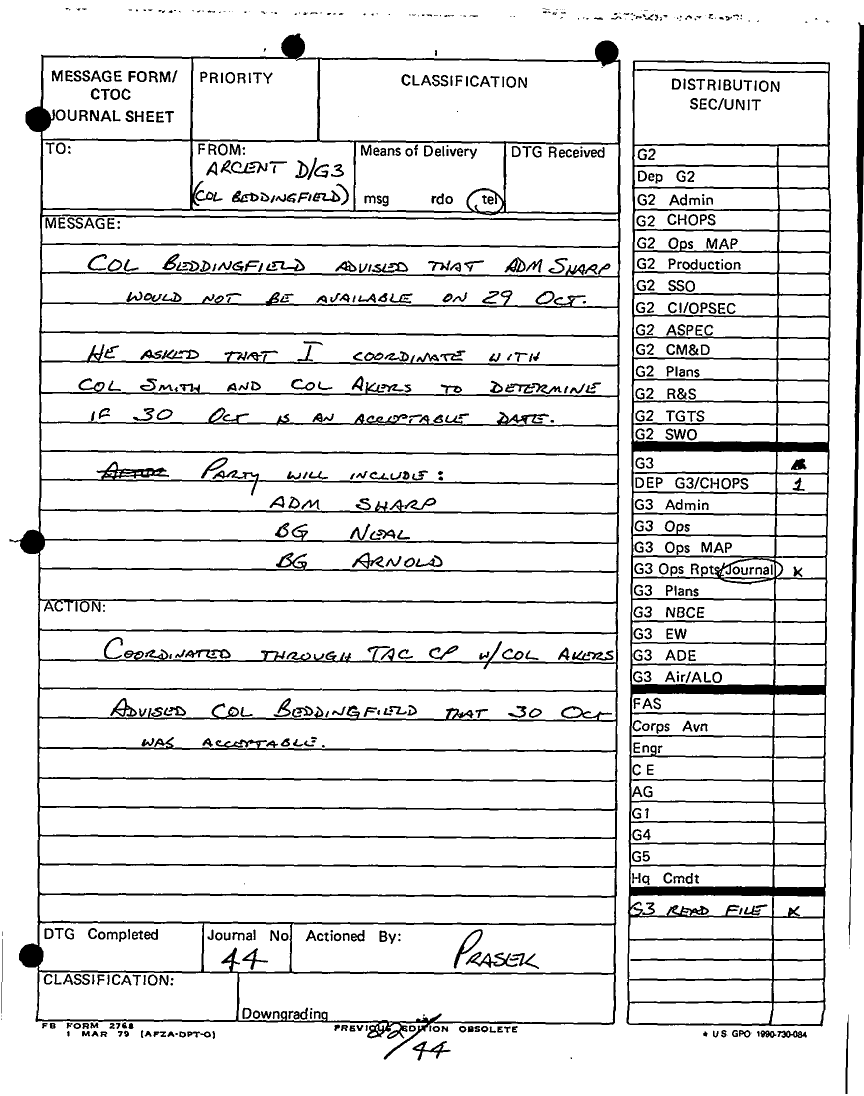 MESSAGE FORM/
CTOC
JOURNAL SHEET
PRIORITY
CLASSIFICATION
TO:
FROM:
ARCENT D/G3
(COL BEDDINGFIELD)
Means of Delivery
msg rdo tel
DTG Received
MESSAGE:
COL BEDDINGFIELD ADVISED THAT ADM SHARP
WOULD NOT BE AVAILABLE ON 29 OCT.
HE ASKED THAT I COORDINATE WITH
COL SMITH AND COL AKERS TO DETERMINE
IF 30 OCT IS AN ACCEPTABLE DATE.
PARTY WILL INCLUDE:
ADM SHARP
BG NEAL
BG ARNOLD
ACTION:
COORDINATED THROUGH TAC CP W/COL AKERS
ADVISED COL BEDDINGFIELD THAT 30 OCT
WAS ACCEPTABLE.
DTG Completed
Journal No
44
Actioned By:
PRASEK
CLASSIFICATION:
Downgrading
FB FORM 2768
1 MAR 79 (AFZA-DPT-O)
PREVIOUS EDITION OBSOLETE
22/44
DISTRIBUTION
SEC/UNIT
G2
Dep G2
G2 Admin
G2 CHOPS
G2 Ops MAP
G2 Production
G2 SSO
G2 CI/OPSEC
G2 ASPEC
G2 CM&D
G2 Plans
G2 R&S
G2 TGTS
G2 SWO
G3
DEP G3/CHOPS 1
G3 Admin
G3 Ops
G3 Ops MAP
G3 Ops Rpts/Journal x
G3 Plans
G3 NBCE
G3 EW
G3 ADE
G3 Air/ALO
FAS
Corps Avn
Engr
C E
AG
G1
G4
G5
Hq Cmdt
G3 READ FILE x
* U S GPO 1990-730-084